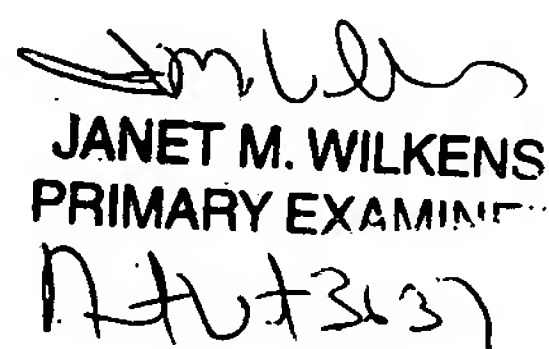 JANET M. WILKENS
PRIMARY EXAMINE
Art Unit 3637